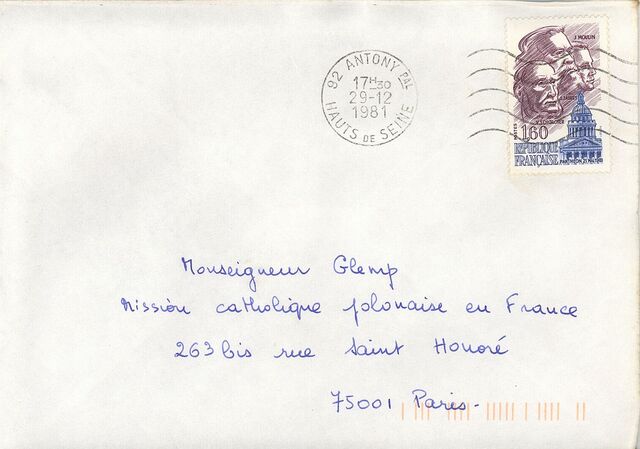 92 ANTONY PAL
17H30
29-12
1981
HAUTS DE SEINE
J. MOULIN
J. JAURES
V. SCHOELCHER
POSTES
1,60
RÉPUBLIQUE
FRANÇAISE
PANTHEON 21 MAI 1981
Monseigneur Glemp
Mission catholique polonaise en France
263 bis rue Saint Honoré
75001 Paris.